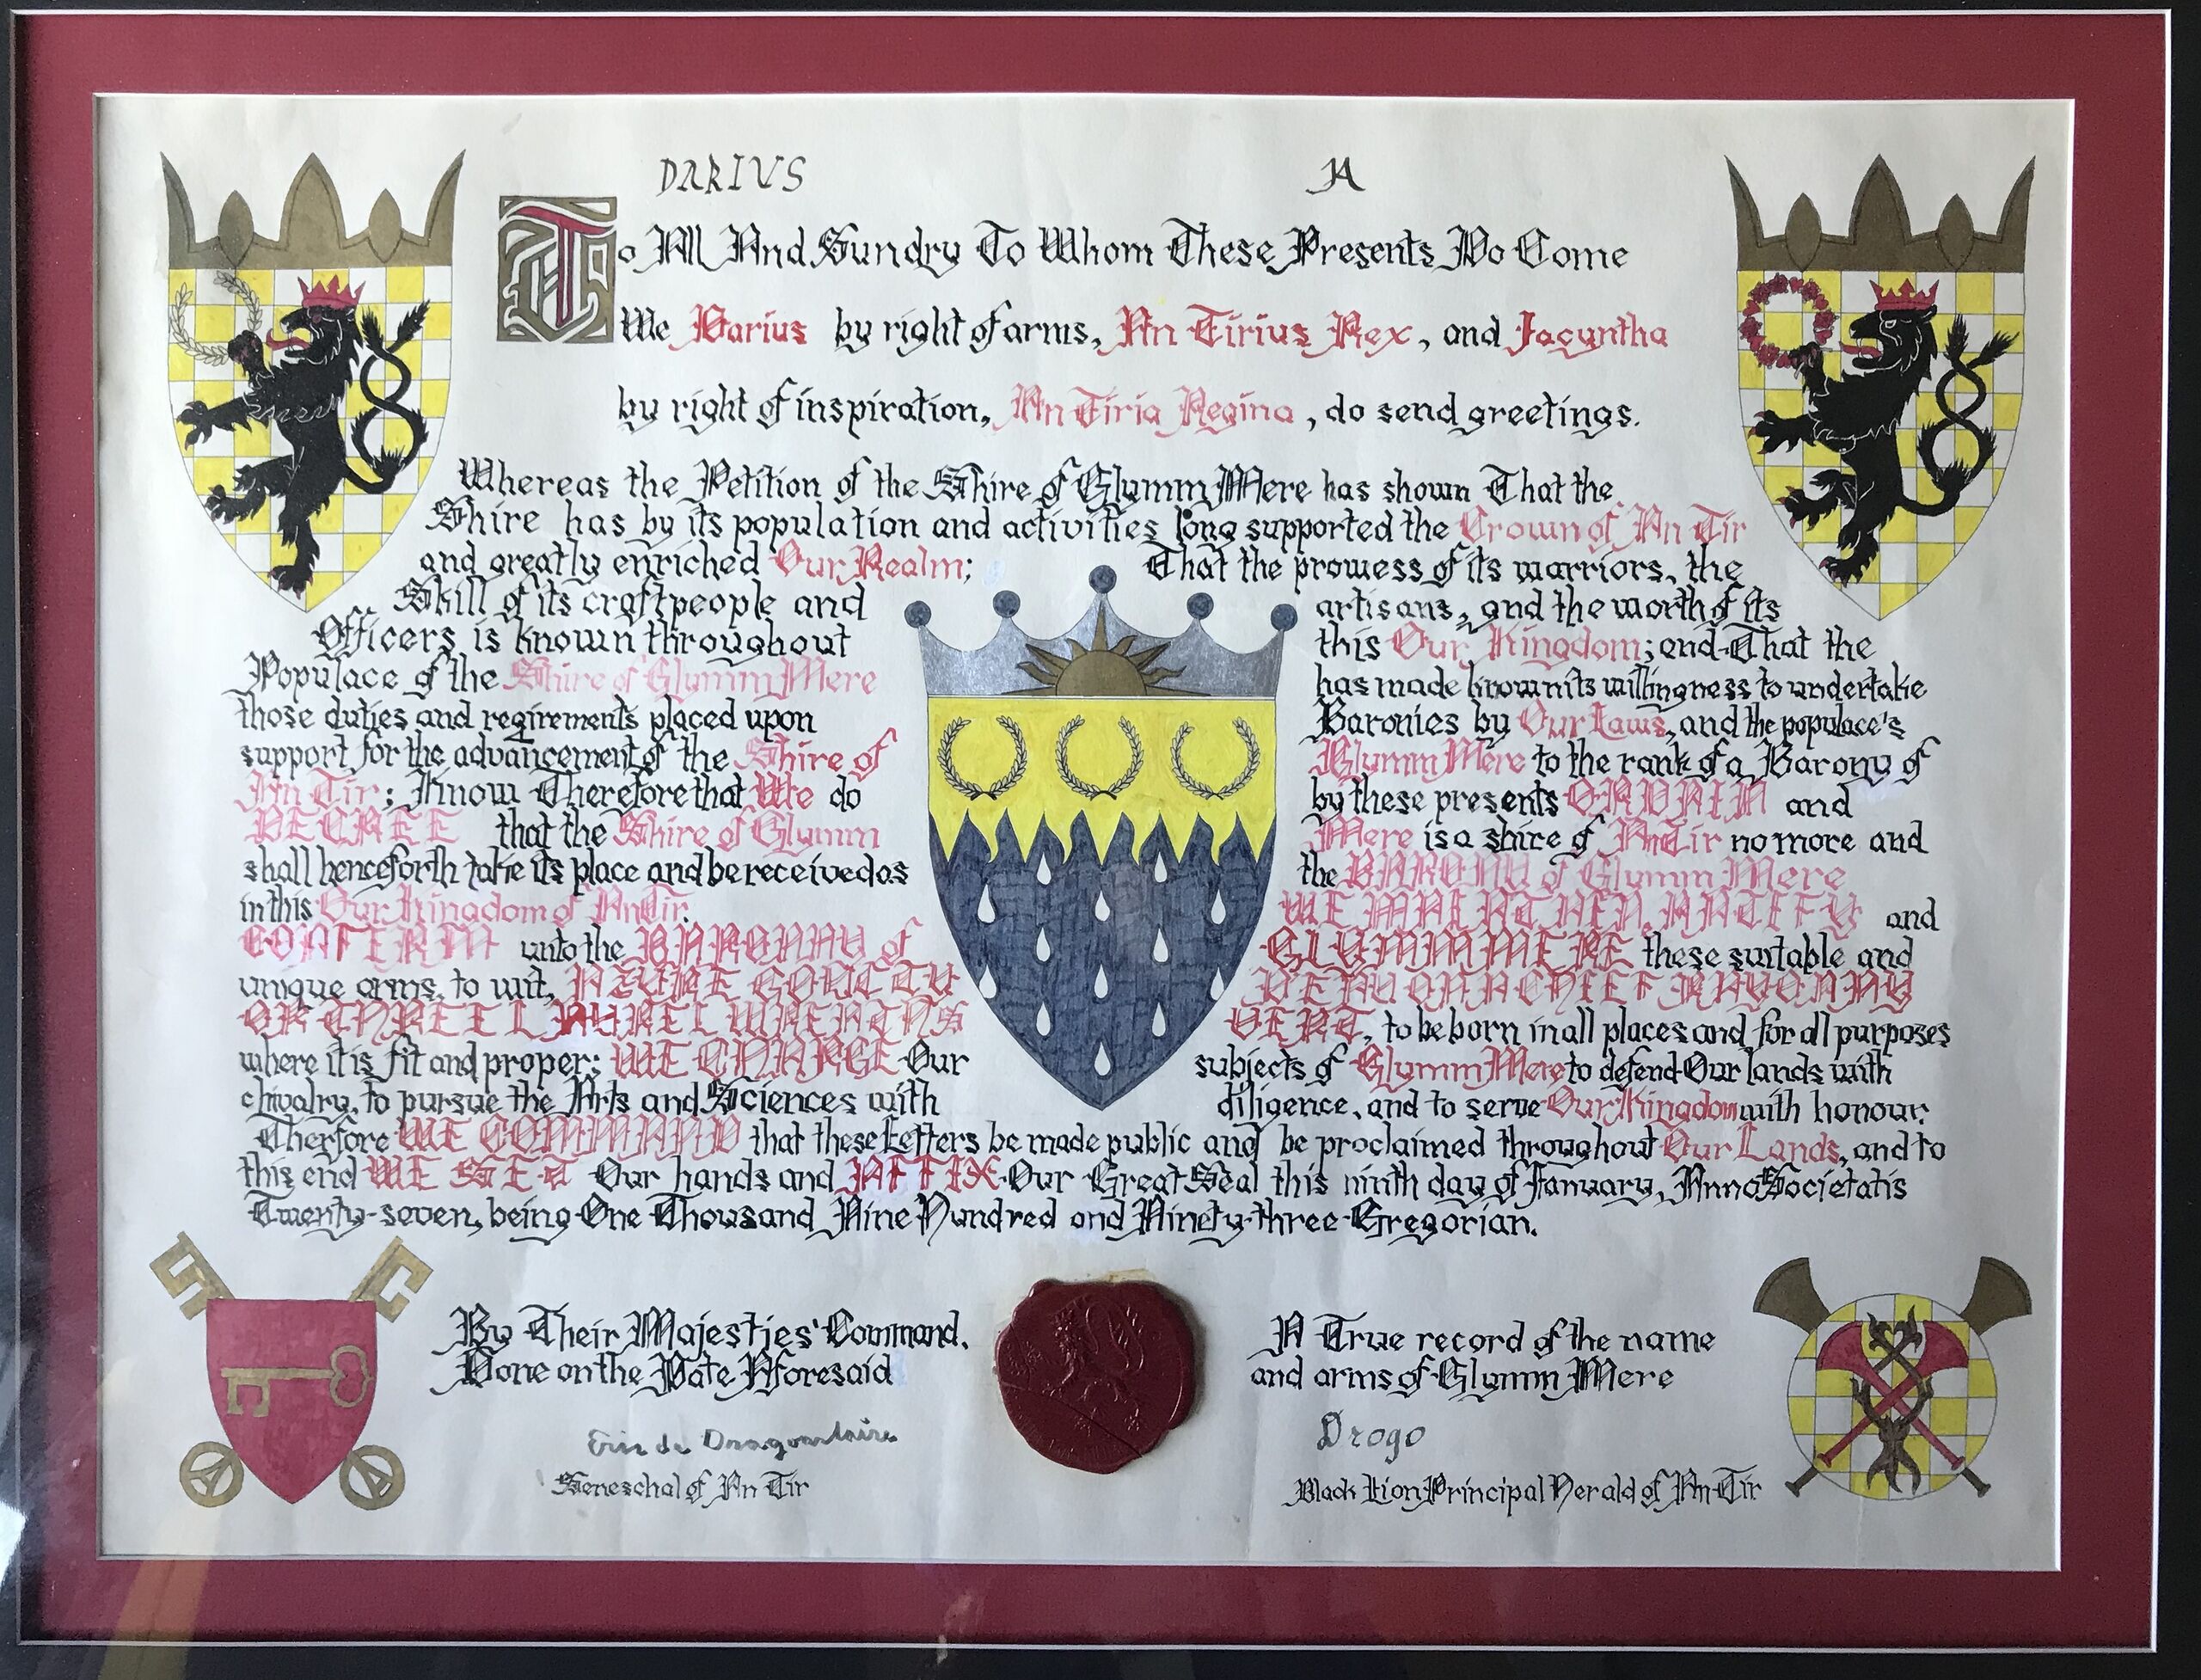 DARIUS JA
To All And Sundry To Whom These Presents Do Come
We Darius by right of arms, An Tirius Rex, and Jacyntha
by right of inspiration, An Tiria Regina, do send greetings.
Whereas the Petition of the Shire of Glymm Mere has shown That the
Shire has by its population and activities long supported the Crown of An Tir
and greatly enriched Our Realm; That the prowess of its warriors, the
Skill of its craftpeople and artisans, and the worth of its
Officers is known throughout this Our Kingdom; and That the
Populace of the Shire of Glymm Mere has made known its willingness to undertake
those duties and reqirements placed upon Baronies by Our Laws, and the populace's
support for the advancement of the Shire of Glymm Mere to the rank of a Barony of
An Tir; Know Therefore that We do by these presents ORDAIN and
DECREE that the Shire of Glymm Mere is a shire of An Tir no more and
shall henceforth take its place and be received as the BARONY of Glymm Mere
in this Our Kingdom of An Tir. WE and
CONFIRM unto the BARONNY of GLYMM MERE these suitable and
unique arms, to wit, AZURE GOUTTY DEAU ON A CHIEF RAYONNY
OR THREE LAUREL WREATHS VERT, to be born in all places and for all purposes
where it is fit and proper; WE CHARGE Our subjects of Glymm Mere to defend Our lands with
chivalry, to pursue the Arts and Sciences with diligence, and to serve Our Kingdom with honour.
Therfore WE COMMAND that these Letters be made public and be proclaimed throughout Our Lands, and to
this end WE SET Our hands and AFFIX Our Great Seal this ninth day of January, Anno Societatis
Twenty-seven, being One Thousand Nine Hundred and Ninety-three Gregorian.
By Their Majesties' Command. A True record of the name
Done on the Date Aforesaid and arms of Glymm Mere
Eric de Dragonlaire Drogo
Seneschal of An Tir Black Lion Principal Herald of An-Tir